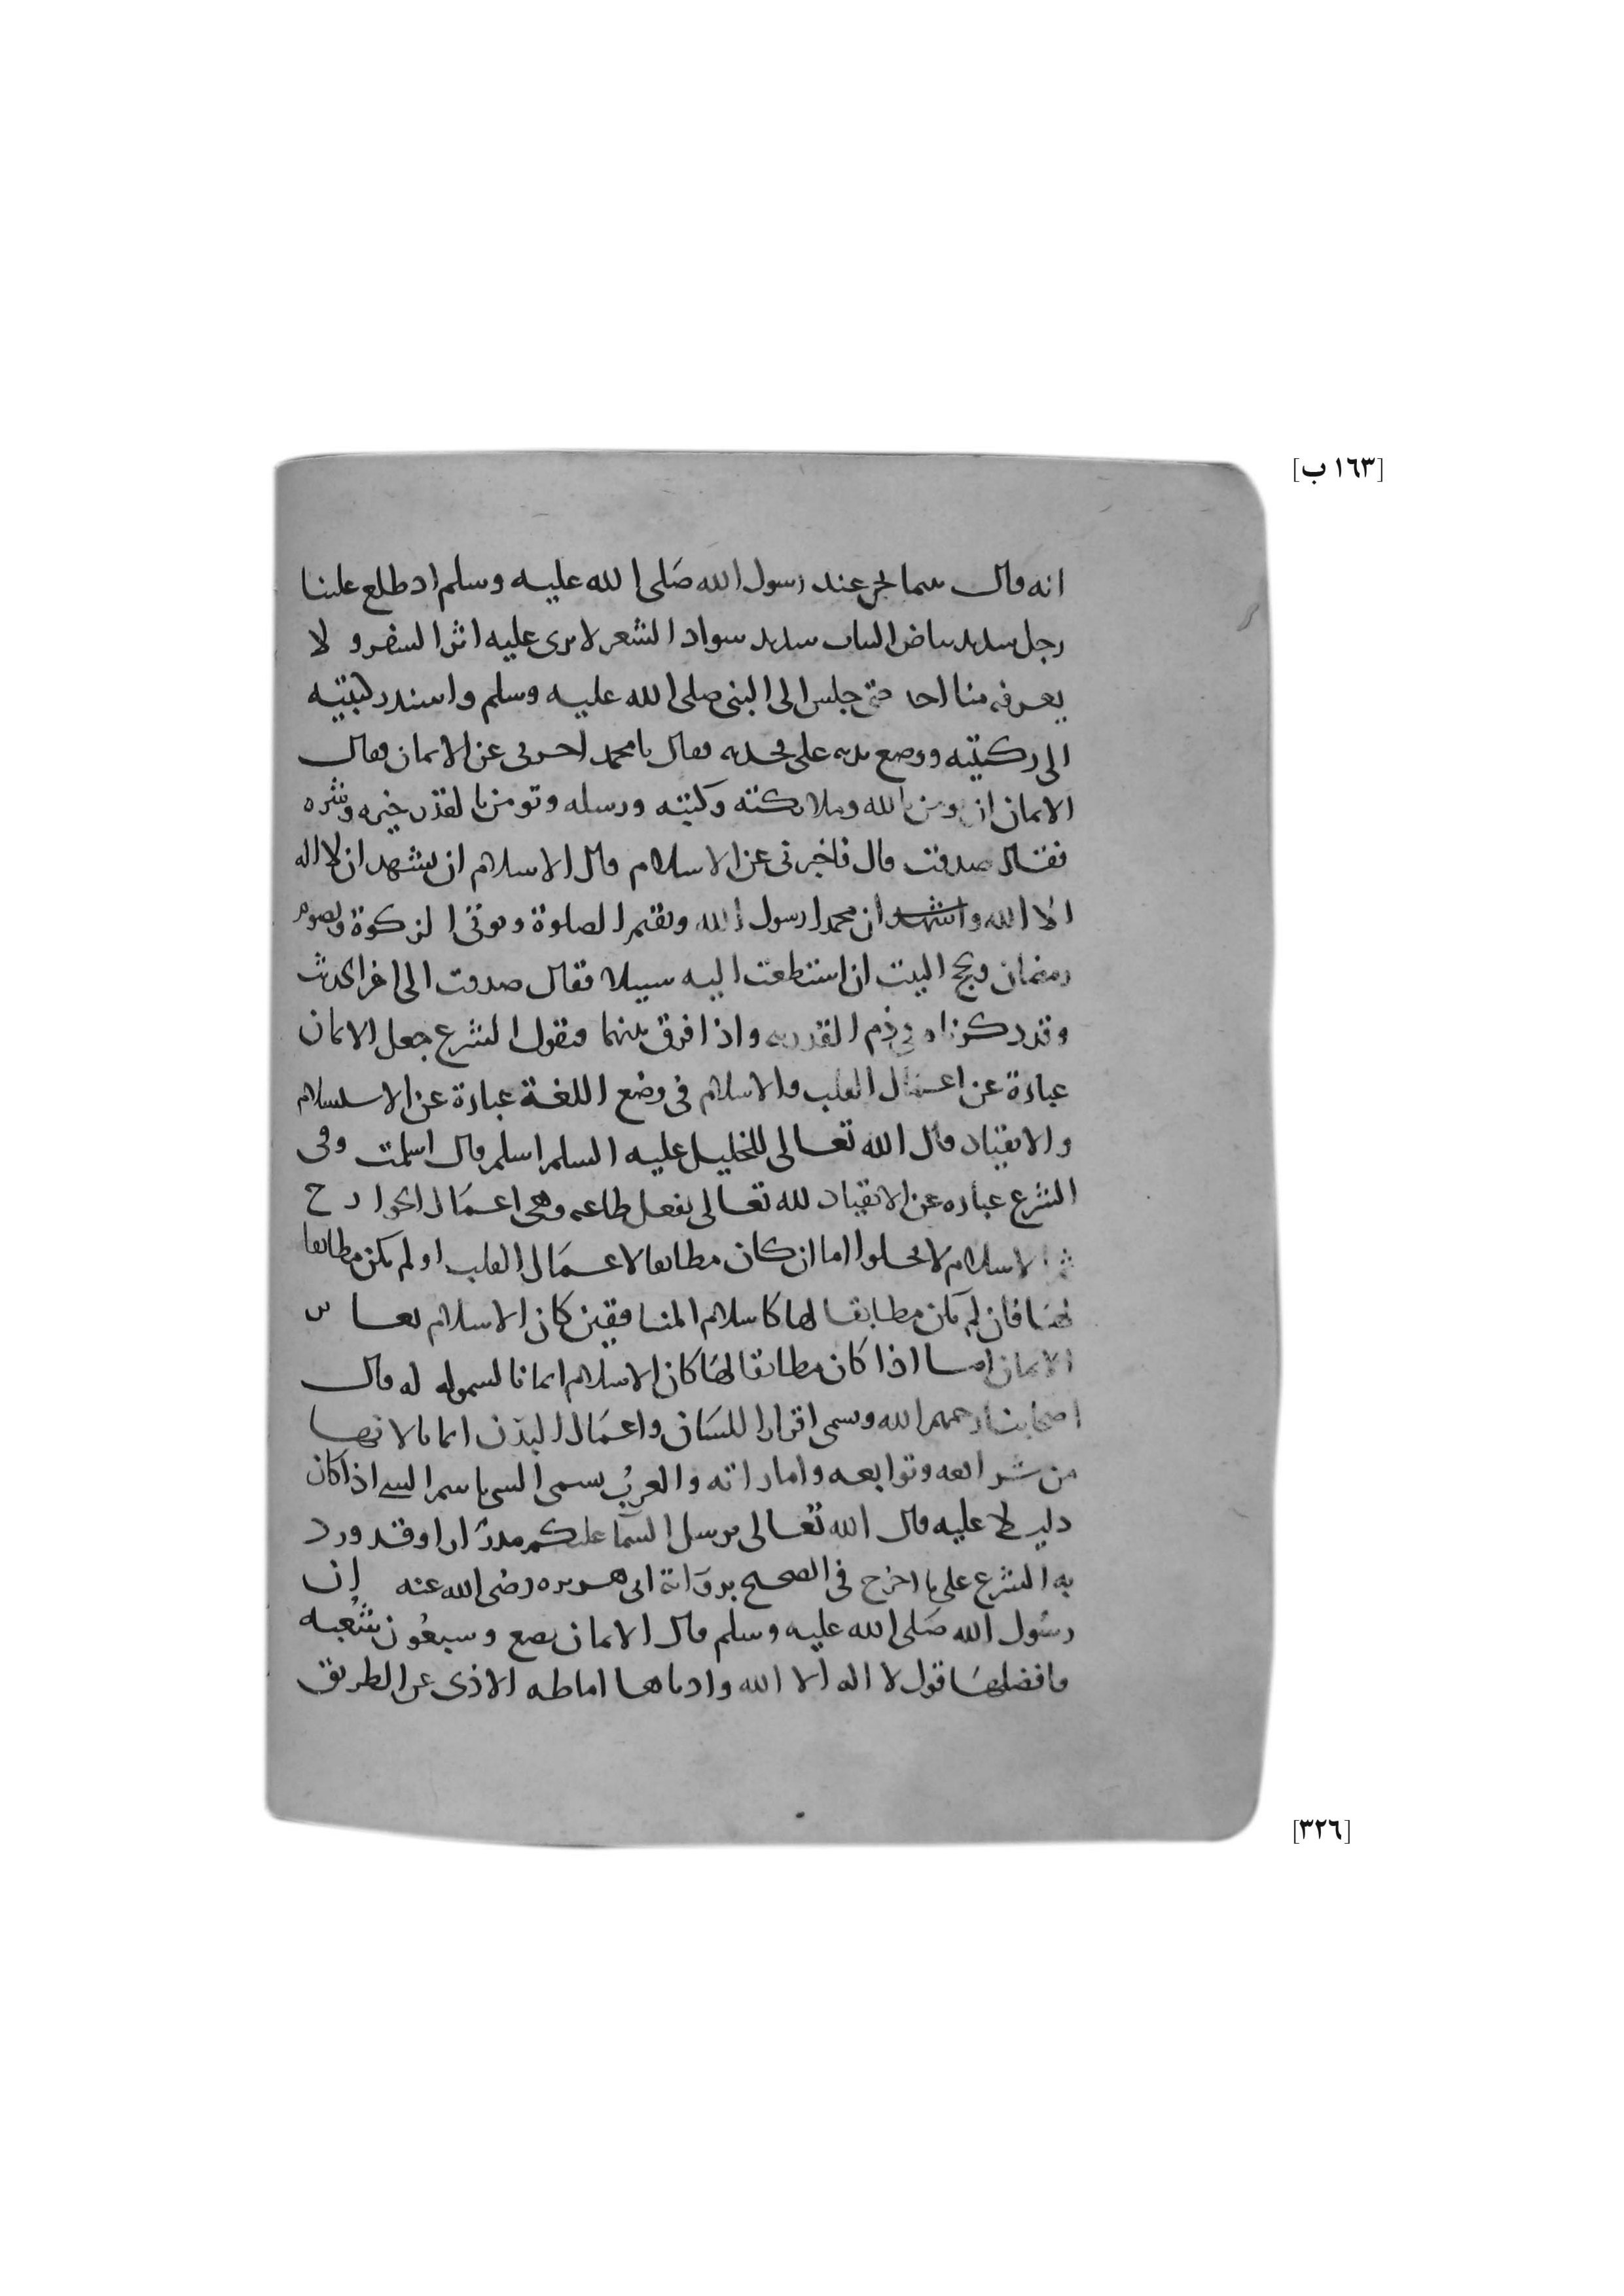 [١٦٣ ب]
انه قال بينما نحن عند رسول الله صلى الله عليه وسلم اذ طلع علينا
رجل شديد بياض الثياب شديد سواد الشعر لا يرى عليه اثر السفر ولا
يعرفه منا احد حتى جلس الى النبي صلى الله عليه وسلم واسند ركبتيه
الى ركبتيه ووضع يديه على فخديه فقال يا محمد اخبرني عن الايمان فقال
الايمان ان تومن بالله وملائكته وكتبه ورسله وتومن بالقدر خيره وشره
فقال صدقت قال فاخبرني عن الاسلام قال الاسلام ان تشهد ان لا اله
الا الله واشهد ان محمدا رسول الله وتقيم الصلوة وتوتي الزكوة وتصوم
رمضان وتحج البيت ان استطعت اليه سبيلا فقال صدقت الى اخر الحديث
وقد ذكرناه في ذم القدريه واذا فرق بينهما فنقول الشرع جعل الايمان
عبارة عن اعمال القلب والاسلام في وضع اللغة عبارة عن الاستسلام
والانقياد قال الله تعالى للخليل عليه السلم اسلم قال اسلمت وفي
الشرع عباره عن الانقياد لله تعالى بفعل طاعته وهي اعمال الجوارح
ثم الاسلام لا يخلوا اما ان كان مطابقا لاعمال القلب او لم يكن مطابقا
لها فان لم يكن مطابقا لها كاسلام المنافقين كان الاسلام
الايمان اما اذا كان مطابقا لها كان الاسلام ايمانا لشموله له قال
اصحابنا رحمهم الله وسمي اقرار اللسان واعمال البدن ايمانا لانها
من شرائعه وتوابعه واماراته والعرب تسمي الشي باسم الشي اذا كان
دليلا عليه قال الله تعالى يرسل السماء عليكم مدرارا وقد ورد
به الشرع على ما اخرج في الصحيح برواية ابي هريره رضي الله عنه ان
رسول الله صلى الله عليه وسلم قال الايمان بضع وسبعون شعبه
فافضلها قول لا اله الا الله وادناها اماطه الاذى عن الطريق
[٣٢٦]